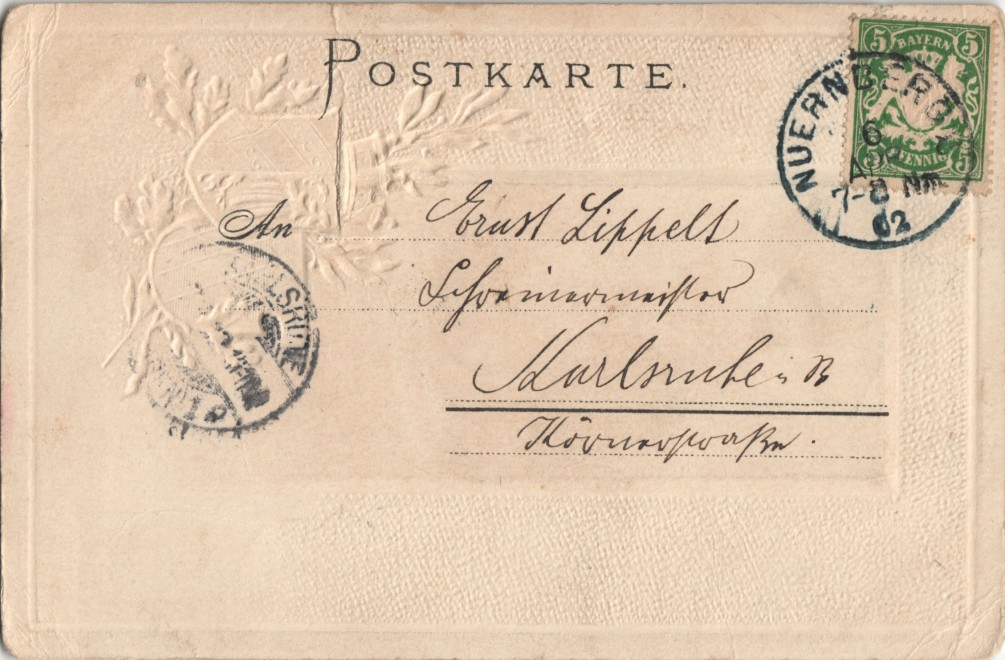 POSTKARTE.
5 BAYERN 5
5 PFENNIG 5
NUERNBERG
6
7-8 Nm
02
An Ernst Lippelt
Schreinermeister
Karlsruhe i B
Körnerstraße.
KARLSRUHE